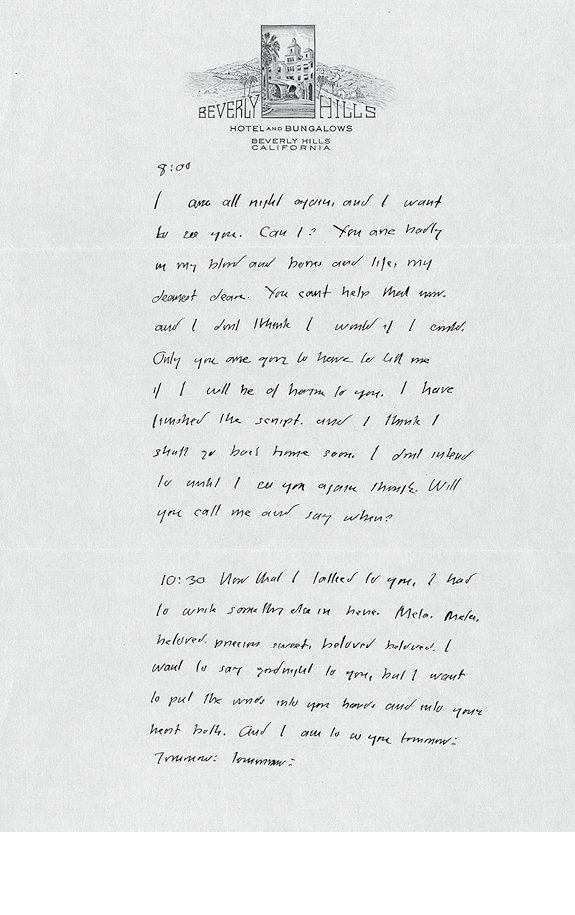 BEVERLY HILLS
HOTEL AND BUNGALOWS
BEVERLY HILLS
CALIFORNIA
8:00
I am all right again, and I want
to see you. Can I? You are badly
in my blood and bones and life, my
dearest dear. You cant help that now.
and I dont think I would if I could.
Only you are going to have to tell me
if I will be of harm to you. I have
finished the script. and I think I
shall go back home soon. I dont intend
to until I see you again though. Will
you call me and say when?
10:30 Now that I talked to you, I had
to write something else in here. Meta. Meta,
beloved. precious sweet, beloved beloved. I
want to say goodnight to you, but I want
to put the words into your hands and into your
heart both. And I am to see you tomorrow:
Tomorrow: Tomorrow: